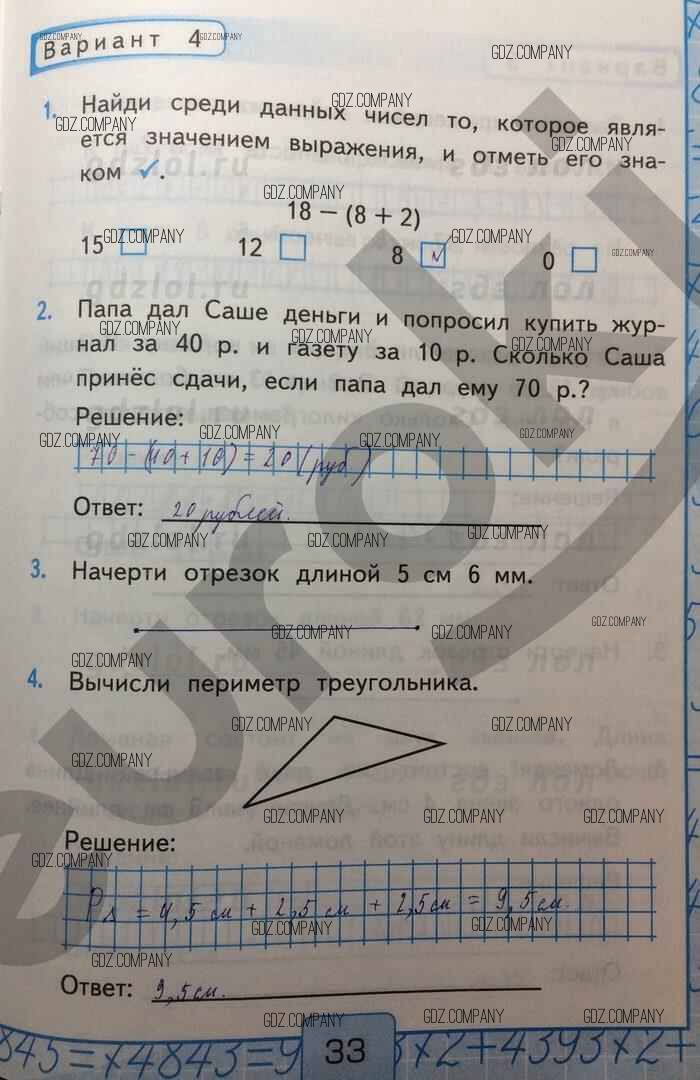 Вариант 4
1. Найди среди данных чисел то, которое явля-
ется значением выражения, и отметь его зна-
ком ✓.
18 − (8 + 2)
15 12 8 ✓ 0
2. Папа дал Саше деньги и попросил купить жур-
нал за 40 р. и газету за 10 р. Сколько Саша
принёс сдачи, если папа дал ему 70 р.?
Решение:
70 - (40 + 10) = 20 (руб)
Ответ: 20 рублей.
3. Начерти отрезок длиной 5 см 6 мм.
4. Вычисли периметр треугольника.
Решение:
P∆ = 4,5 см + 2,5 см + 2,5 см = 9,5 см.
Ответ: 9,5 см.
33
GDZ.COMPANY
euroki